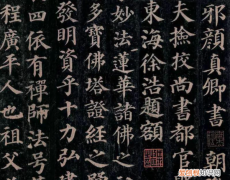 邪顏真卿書朝
夫撿挍尚書都官
東海徐浩題額
妙法蓮華諸佛之
多寶佛塔證經之
發明資乎十力弘建
四依有禪師法号
程廣平人也祖父